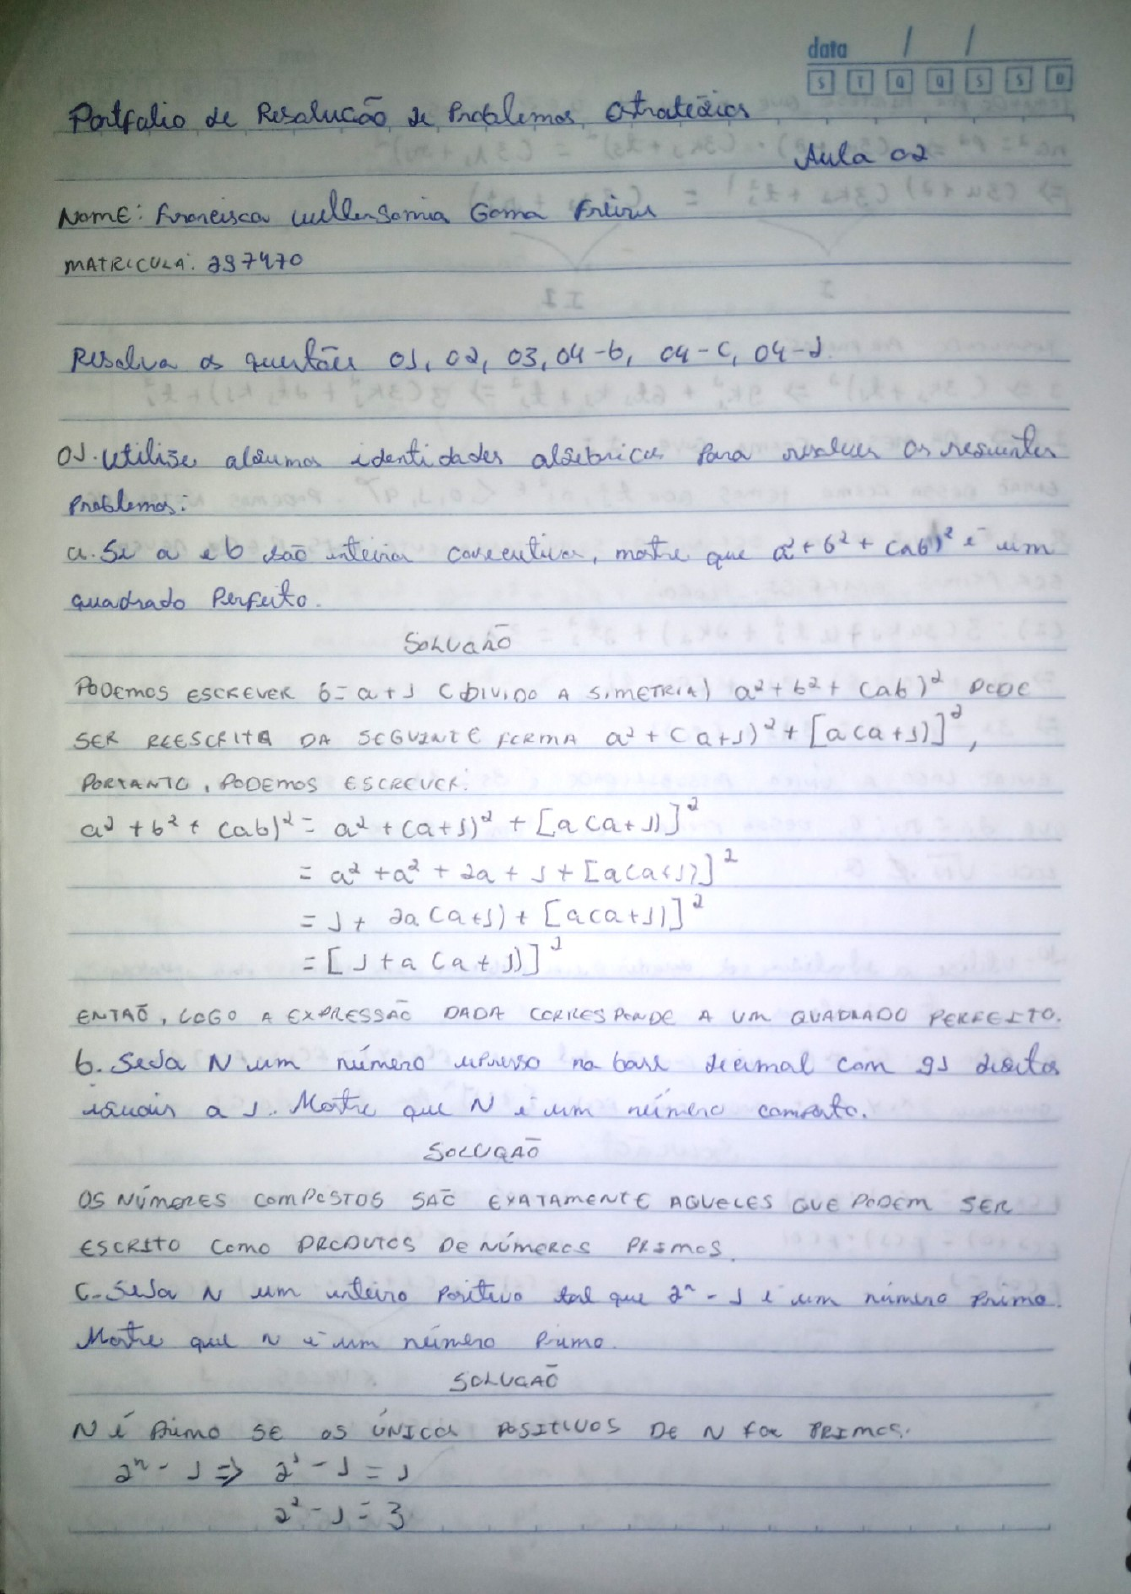 data / /
S T Q Q S S D
Portfolio de Resolucão de Problemas estratégicos
Aula 02
NOME: Francisca Gama Freire
MATRICULA: 297470
Resolva as questões 01, 02, 03, 04-b, 04-c, 04-d.
01. Utilize algumas identidades algébricas para resolver os seguintes
Problemas:
a. Se a e b são inteiros consecutivos, mostre que a² + b² + (ab)² é um
quadrado Perfeito.
SOLUCÃO
PODEMOS ESCREVER b = a + 1 (DIVIDO A SIMETRIA) a² + b² + (ab)² PODE
SER REESCRITA DA SEGUINTE FORMA a² + (a+1)² + [a(a+1)]²,
PORTANTO, PODEMOS ESCREVER:
a² + b² + (ab)² = a² + (a+1)² + [a(a+1)]²
= a² + a² + 2a + 1 + [a(a+1)]²
= 1 + 2a(a+1) + [a(a+1)]²
= [1 + a(a+1)]²
ENTÃO, LOGO A EXPRESSÃO DADA CORRESPONDE A UM QUADRADO PERFEITO.
b. Seja N um número expresso na base decimal com 91 digitos
iguais a 1. Mostre que N é um número composto.
SOLUÇÃO
OS NÚMEROS COMPOSTOS SÃO EXATAMENTE AQUELES QUE PODEM SER
ESCRITO COMO PRODUTOS DE NÚMEROS PRIMOS.
C. Seja N um inteiro Positivo tal que 2ⁿ - 1 é um número Primo.
Mostre que n é um número Primo.
SOLUCÃO
N é Primo SE OS ÚNICOS POSITIVOS DE N FOR PRIMOS.
2ⁿ - 1 => 2¹ - 1 = 1
2² - 1 = 3